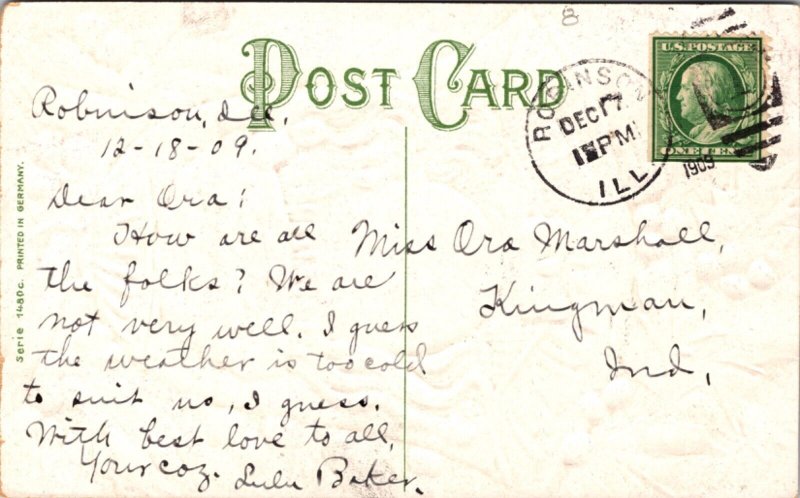 8
POST CARD
U.S. POSTAGE
ONE CENT
ROBINSON
DEC 17
PM
1909
ILL.
Robinson, Ill.
12-18-09.
Dear Ora:
How are all
the folks? We are
not very well. I guess
the weather is too cold
to suit us, I guess.
With best love to all,
Your coz. Lulu Baker.
Miss Ora Marshall,
Kingman,
Ind,
Serie 1480c. PRINTED IN GERMANY.